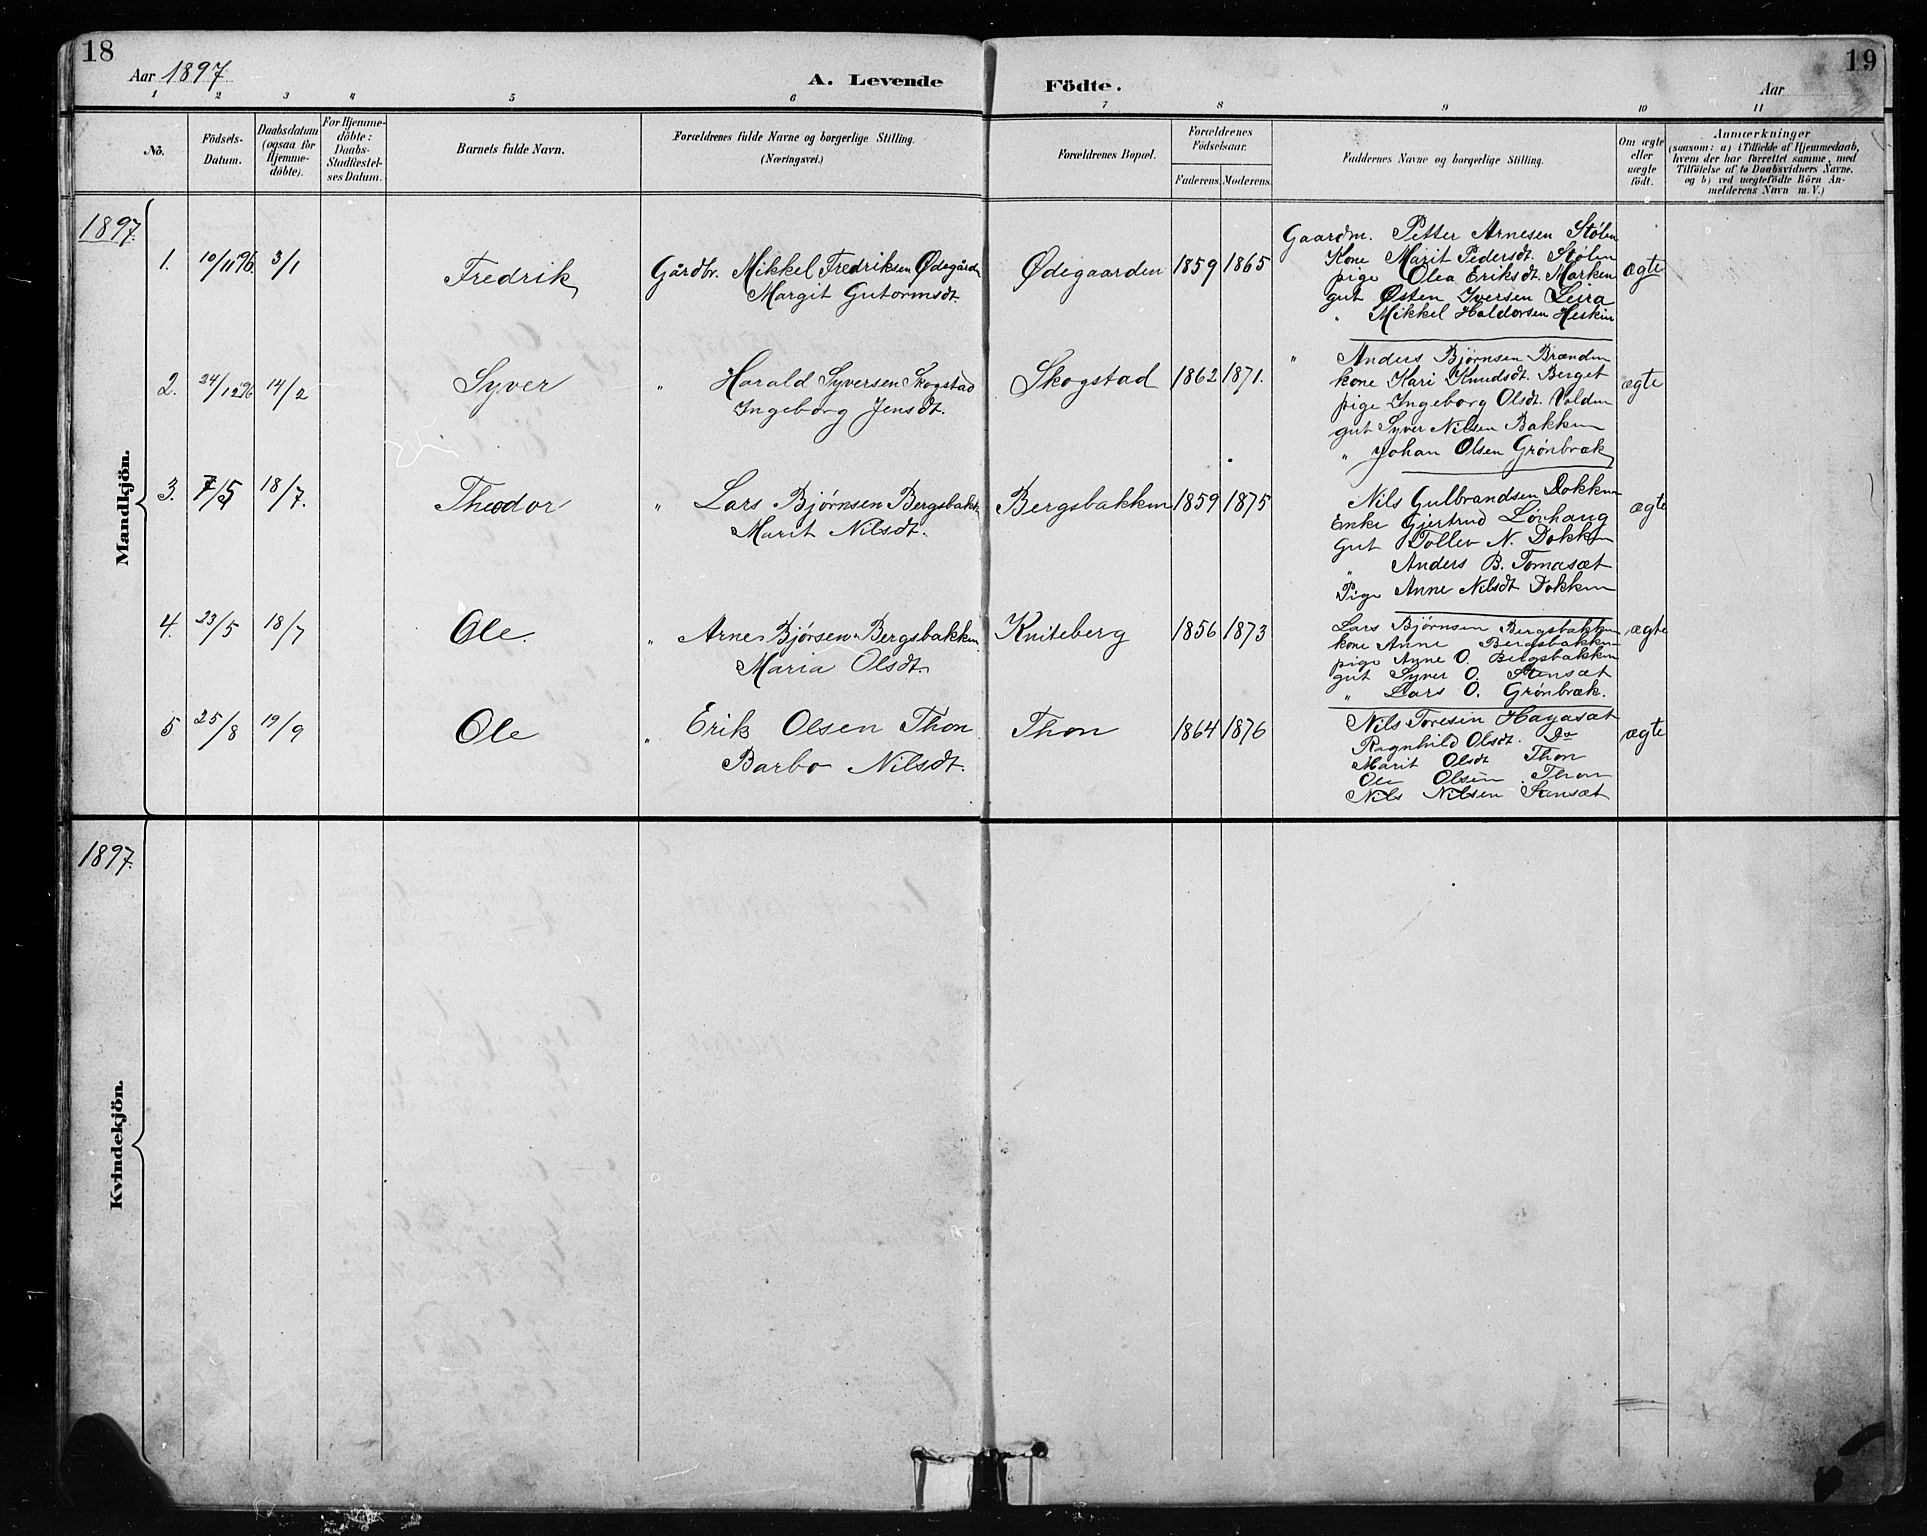 18
Aar 1897
A. Levende Födte.
Aar
19
1 2 3 4 5 6 7 8 9 10 11
No.
Födsels-Datum.
Daabsdatum (ogsaa for Hjemme-döbte).
For Hjemme-döbte: Daabs-Stadfæstel-ses Datum.
Barnets fulde Navn.
Forældrenes fulde Navne og borgerlige Stilling.
(Næringsvei.)
Forældrenes Bopæl.
Forældrenes Födselsaar.
Faderens. Moderens.
Faddernes Navne og borgerlige Stilling.
Om ægte eller uægte födt.
Anmærkninger
(saasom: a) i Tilfælde af Hjemmedaab,
hvem der har forrettet samme, med
Tilföielse af to Daabsvidners Navne.
og b) ved uægtefödte Börn An-
melderens Navn m. V.)
1897
Mandkjön.
1. 10/11 96. 3/1 Fredrik Gårdbr. Mikkel Fredriksen Ødegården Ødegaarden 1859 1865 ægte
Margit Gutormsdt.
Gaardm. Petter Arnesen Stølen
Kone Marit Pedersdt. Stølen
pige Olea Eriksdt. Marken
gut Østen Iversen Leira
" Mikkel Haldorsen Heskin
2. 24/12 96 14/2 Syver " Harald Syversen Skogstad Skogstad 1862 1871. ægte
Ingeborg Jensdt.
" Anders Bjørnsen Brænden
kone Kari Knudsdt. Berget
pige Ingeborg Olsdt. Volden
gut Syver Nilsen Bakken
" Johan Olsen Grønbræk
3. 18/7. Theodor " Lars Bjørnsen Bergsbakk Bergsbakken 1859 1875 ægte
Marit Nilsdt.
Nils Gulbrandsen Dokken
Enke Gjertrud Lönhaug
Gut Tollev N. Dokken
" Anders B. Tomasæt
Pige Anne Nilsdt Dokken
4. 23/5 18/7 Ole. " Arne Bjørsen Bergsbakken Kniteberg 1856 1873 ægte
Maria Olsdt.
Lars Bjørnsen Bergsbakken
kone Anne Bergsbakken
pige Anne O. Bergsbakken
gut Syver O. Stensæt
" Lars O. Grønbræk.
5 25/8 19/9 Ole " Erik Olsen Thon Thon 1864 1876 ægte
Barbo Nilsdt.
Nils Toresen Hagasæt
Ragnhild Olsdt. Do
Marit Olsdt Thon
Ole Olsen Thon
Nils Nilsen Stensæt
1897.
Kvindekjön.